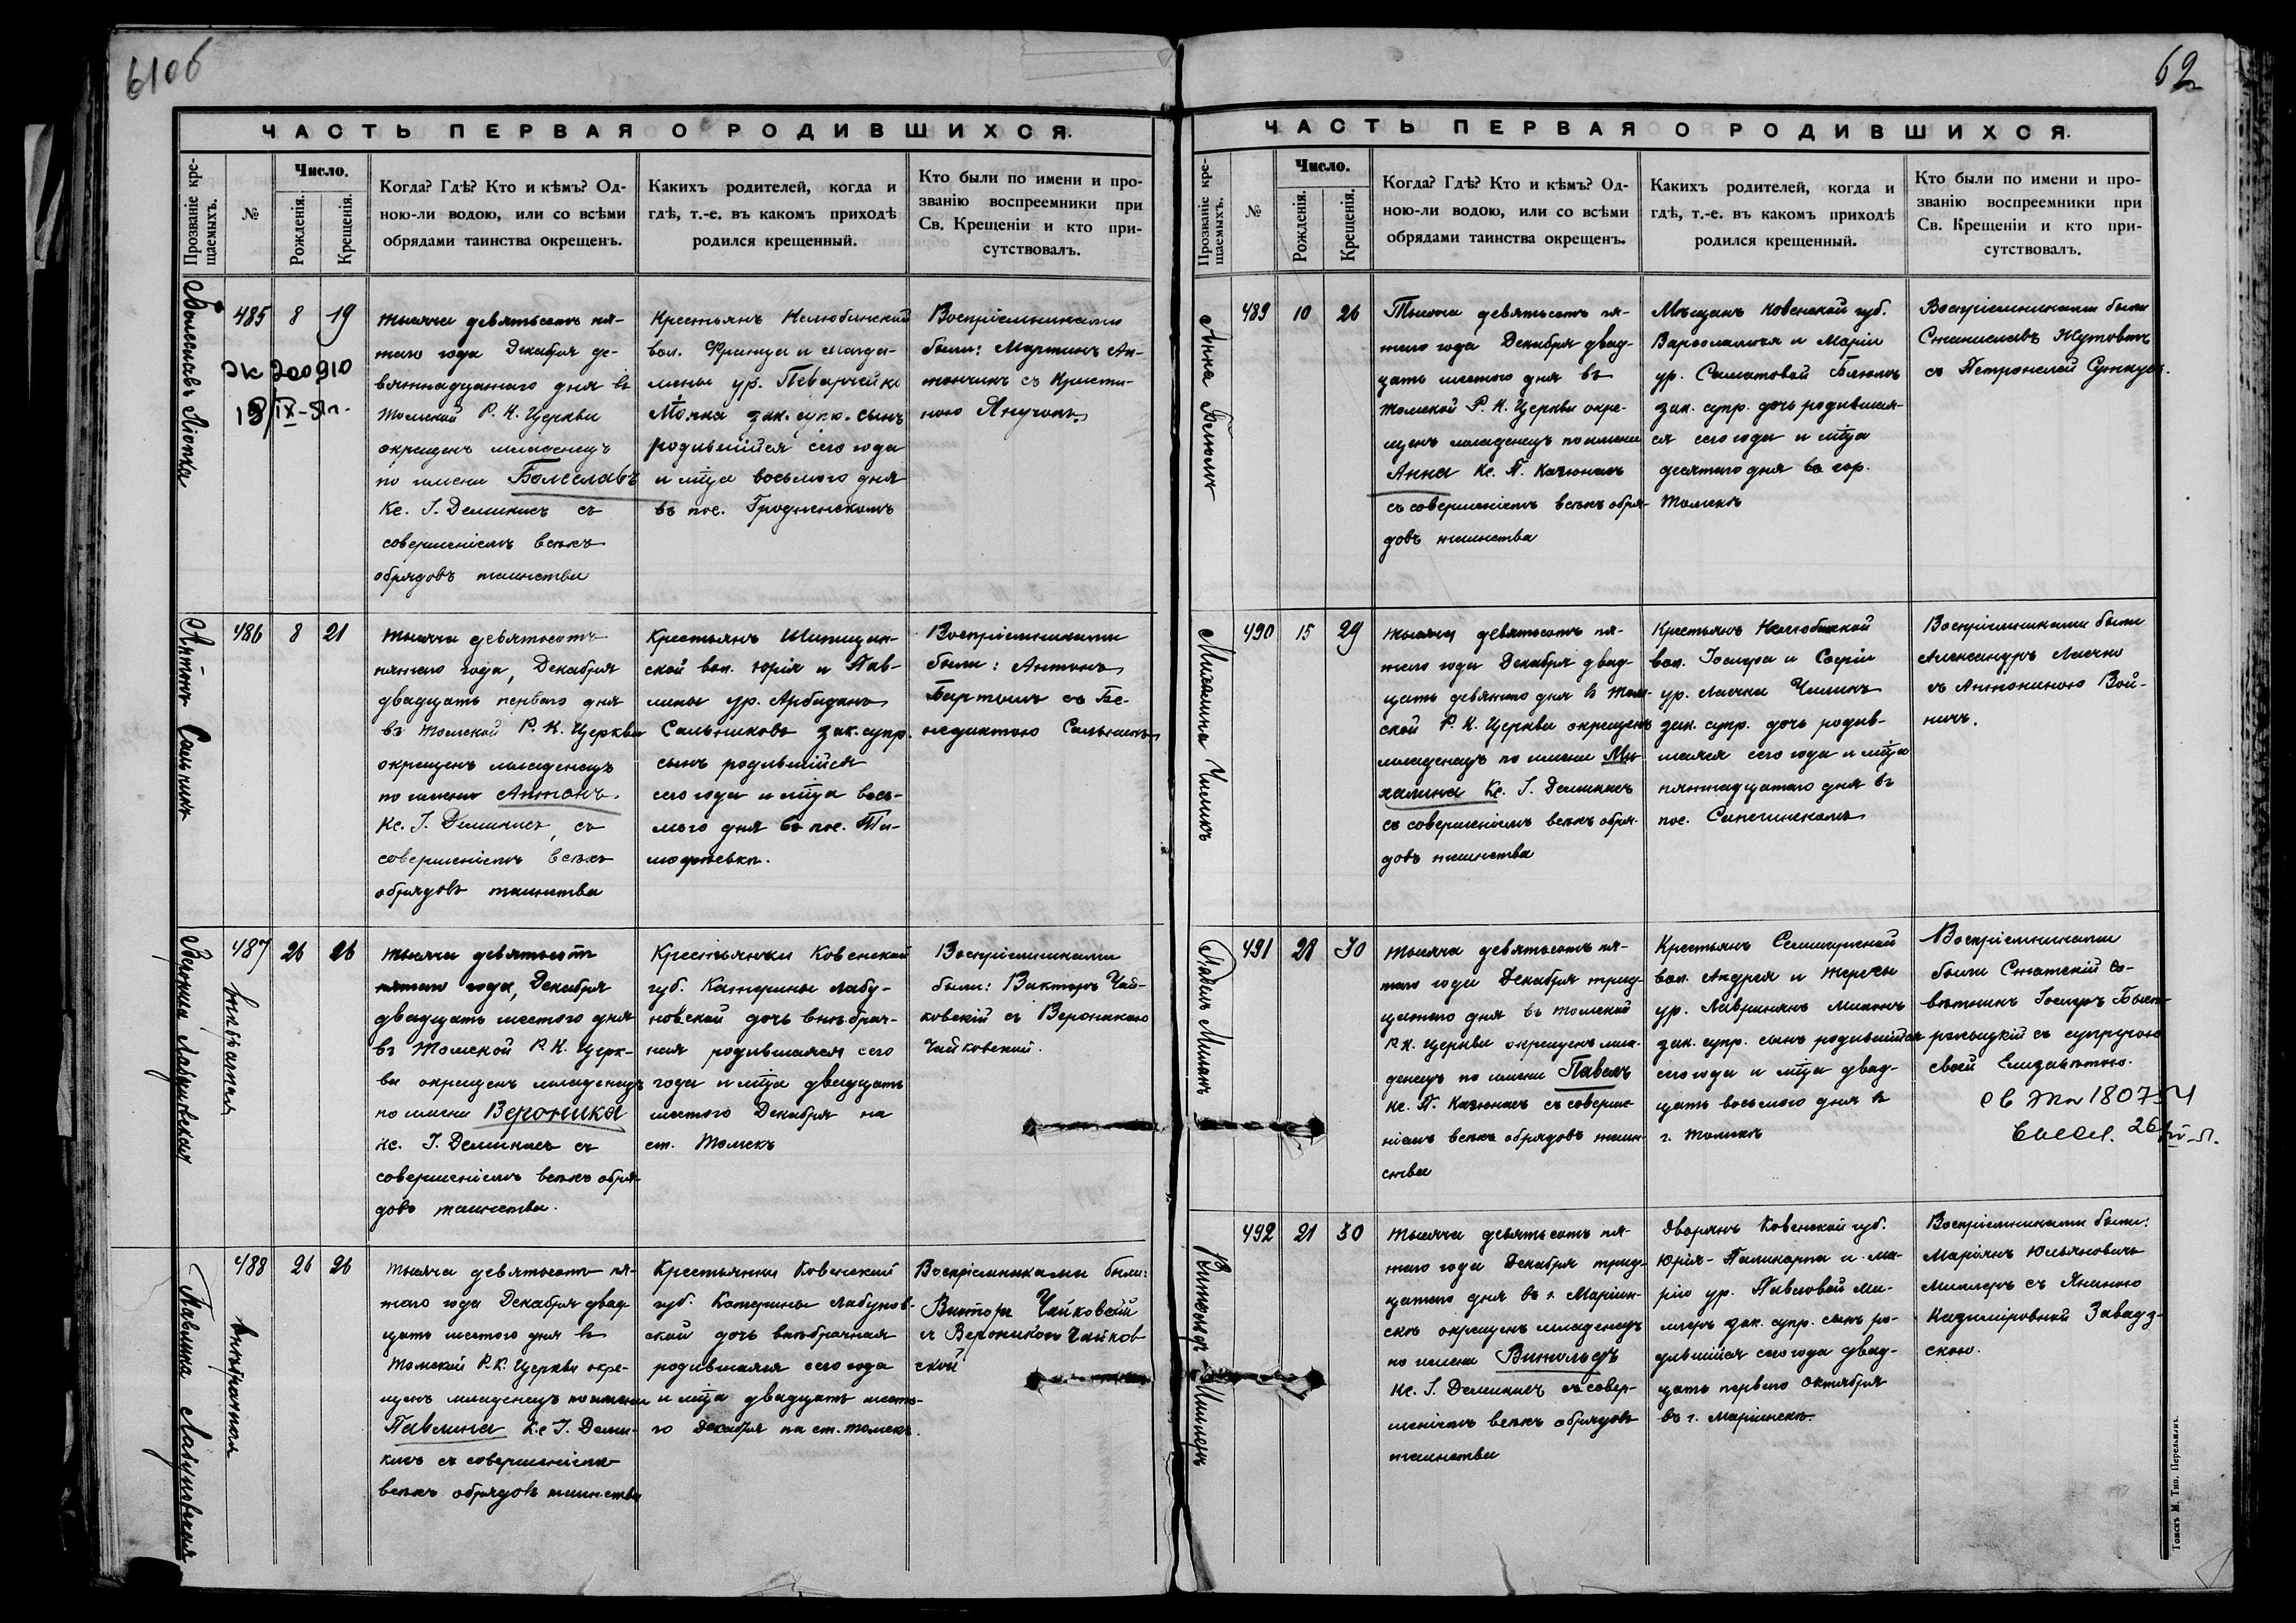 61об
ЧАСТЬ ПЕРВАЯ О РОДИВШИХСЯ.
Прозваніе кре-
щаемыхъ.
№
Число.
Рожденія.
Крещенія.
Когда? Гдѣ? Кто и кѣмъ? Од-
ною-ли водою, или со всѣми
обрядами таинства окрещенъ.
Какихъ родителей, когда и
гдѣ, т.-е. въ какомъ приходѣ
родился крещенный.
Кто были по имени и про-
званію воспреемники при
Св. Крещеніи и кто при-
сутствовалъ.
Болеславъ
485
8
19
Тысяча девятьсотъ пя-
таго года Декабря де-
вятнадцатаго дня въ
Томской Р. К. Церкви
окрещенъ младенецъ
по имени Болеславъ
Кс. І. Демикисъ съ
совершеніемъ всѣхъ
обрядовъ таинства
Крестьянъ Нелюбинской
вол. Франца и Магда-
лины ур.
зак. супр. сынъ
родившійся сего года
и мца восьмого дня
въ пос. Гродненскомъ
Воспріемниками
были: Мартинъ Ан-
тончикъ съ Кристи-
ною
Антонъ Сальникъ
486
8
21
Тысяча девятьсотъ
пятаго года, Декабря
двадцать перваго дня
въ Томской Р. К. Церкви
окрещенъ младенецъ
по имени Антонъ
Кс. І. Демикисъ, съ
совершеніемъ всѣхъ
обрядовъ таинства
Крестьянъ Шипицин-
ской вол. Юрія и Пав-
лины ур.
Сальниковъ зак. супр.
сынъ родившійся
сего года и мца вось-
мого дня въ пос. Ти-
мофеевкѣ.
Воспріемниками
были: Антонъ
съ Бе-
недиктою
Вероника Лабуновская
внѣбрачная
487
26
26
Тысяча девятьсотъ
пятаго года, Декабря
двадцать шестого дня
въ Томской Р. К. Церк-
ви окрещенъ младенецъ
по имени Вероника
Кс. І. Демикисъ съ
совершеніемъ всѣхъ обря-
довъ таинства.
Крестьянки Ковенской
губ. Катерины Лабу-
новской дочь внѣбрач-
ная родившаяся сего
года и мца двадцать
шестого Декабря на
ст. Томскъ
Воспріемниками
были: Викторъ Чай-
ковскій съ Вероникою
Чайковской.
Павлина Лабуновская
внѣбрачная
488
26
26
Тысяча девятьсотъ пя-
таго года Декабря двад-
цать шестого дня въ
Томской Р.К. Церкви окре-
щенъ младенецъ по имени
Павлина Кс І. Деми-
кисъ съ совершеніемъ
всѣхъ обрядовъ таинства
Крестьянки Ковенской
губ. Катерины Лабунов-
ской дочь внѣбрачная
родившаяся сего года
и мца двадцать шесто-
го Декабря на ст. Томскъ.
Воспріемниками были:
Викторъ Чайковскій
съ Вероникою Чайков-
ской
62
ЧАСТЬ ПЕРВАЯ О РОДИВШИХСЯ.
Прозваніе кре-
щаемыхъ.
№
Число.
Рожденія.
Крещенія.
Когда? Гдѣ? Кто и кѣмъ? Од-
ною-ли водою, или со всѣми
обрядами таинства окрещенъ.
Какихъ родителей, когда и
гдѣ, т.-е. въ какомъ приходѣ
родился крещенный.
Кто были по имени и про-
званію воспреемники при
Св. Крещеніи и кто при-
сутствовалъ.
Анна
489
10
26
Тысяча девятьсотъ пя-
таго года Декабря двад-
цать шестого дня въ
Томской Р. К. Церкви окре-
щенъ младенецъ по имени
Анна Кс. П. Казюнасъ
съ совершеніемъ всѣхъ обря-
довъ таинства
Мѣщанъ Ковенской губ.
Варфоломея и Маріи
ур.
зак. супр. дочь родившая-
ся сего года и мца
десятаго дня въ гор.
Томскѣ
Воспріемниками были
Станиславъ
съ Петронелей
Михалина Чиликъ
490
15
29
Тысяча девятьсотъ пя-
таго года Декабря двад-
цать девятаго дня въ Том-
ской Р. К. Церкви окрещенъ
младенецъ по имени Ми-
халина Кс. І. Демикисъ
съ совершеніемъ всѣхъ обря-
довъ таинства
Крестьянъ Нелюбинской
вол. Іосифа и Софіи
ур.
зак. супр. дочь родив-
шаяся сего года и мца
пятнадцатаго дня въ
пос.
Воспріемниками были
Александръ
съ Антониною Вой-
ничъ.
Павелъ
491
28
30
Тысяча девятьсотъ пя-
таго года Декабря трид-
цатаго дня въ Томской
Р. К. Церкви окрещенъ мла-
денецъ по имени Павелъ
Кс. П. Казюнасъ съ соверше-
ніемъ всѣхъ обрядовъ таин-
ства
Крестьянъ Семилужской
вол. Андрея и Терезы
ур.
зак. супр. сынъ родившійся
сего года и мца двад-
цать восьмого дня въ
г. Томскѣ
Воспріемниками
были Статскій Со-
вѣтникъ Іосифъ
съ супругою
своей Елизаветою.
Витольдъ Миллеръ
492
21
30
Тысяча девятьсотъ пя-
таго года Декабря трид-
цатаго дня въ г. Маріин-
скѣ окрещенъ младенецъ
по имени Витольдъ
Кс. І. Демикисъ съ совер-
шеніемъ всѣхъ обрядовъ
таинства
Дворянъ Ковенской губ.
Юрія-Поликарпа и Ма-
ріи ур. Павловой Ми-
ллеръ зак. супр. сынъ ро-
дившійся сего года двад-
цать перваго октября
въ г. Маріинскѣ.
Воспріемниками были:
Маріянъ Юльяновичъ
Миллеръ съ Яниною
Казиміровной Завадз-
скою.
Томскъ М. Тип. Перельманъ.